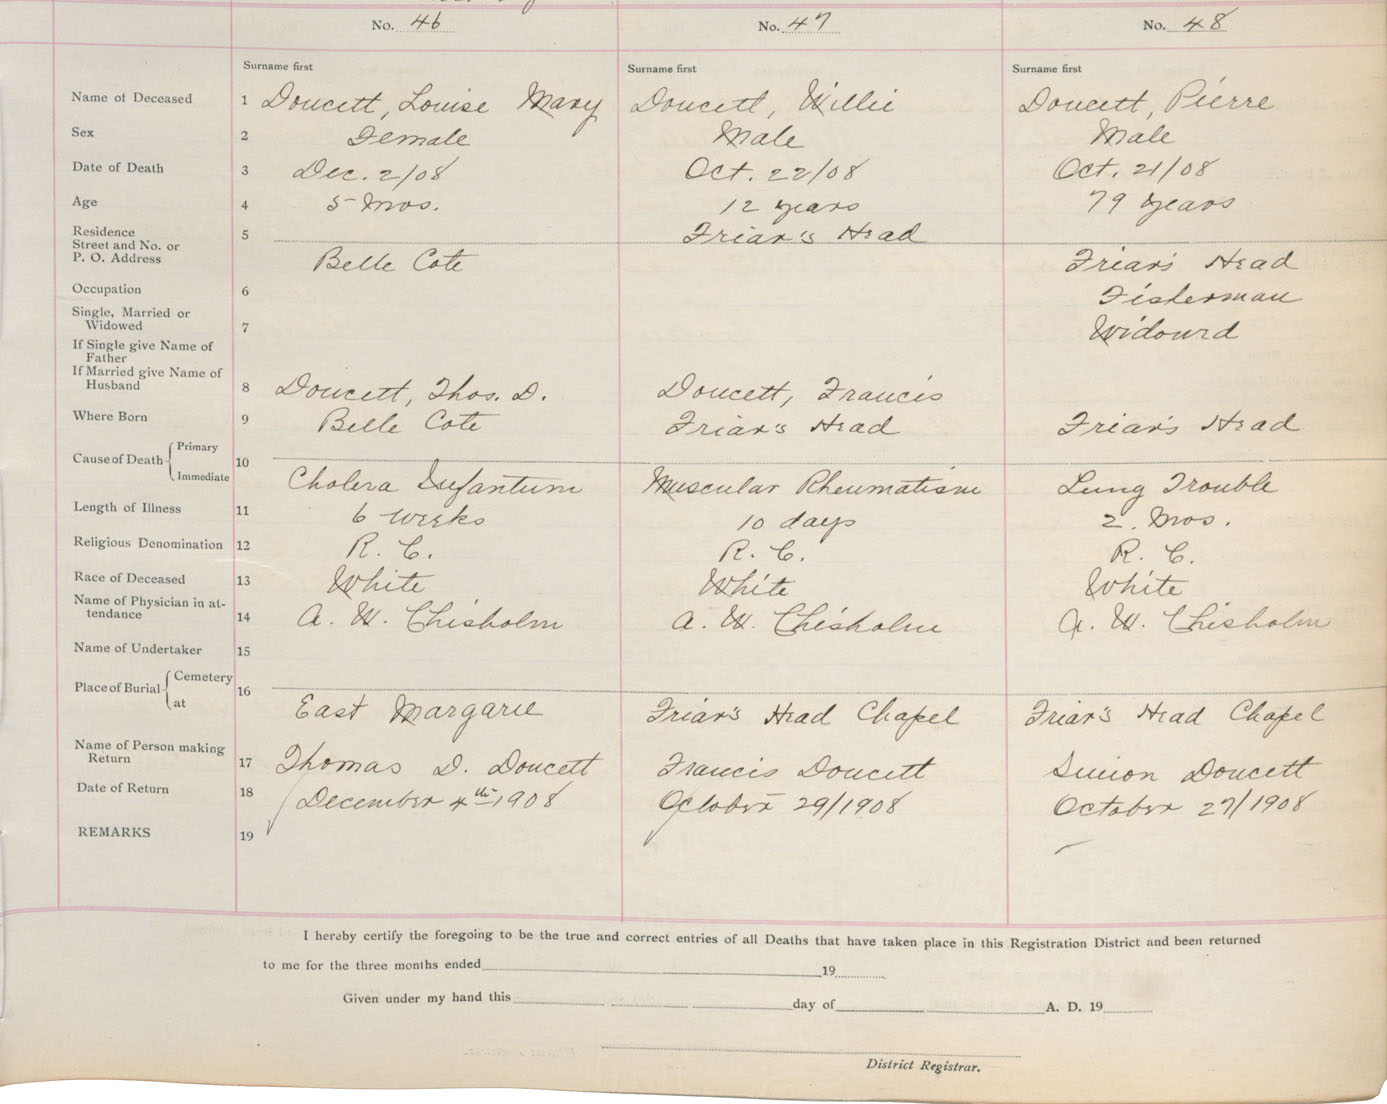 No. 46 No. 47 No. 48
Surname first Surname first Surname first
Name of Deceased 1 Doucett, Louise Mary Doucett, Willie Doucett, Pierre
Sex 2 Female Male Male
Date of Death 3 Dec. 2/08 Oct. 22/08 Oct. 21/08
Age 4 5 Mos. 12 years 79 years
Residence 5 Friar's Head
Street and No. or
P. O. Address Belle Cote Friar's Head
Occupation 6 Fisherman
Single, Married or
Widowed 7 Widowed
If Single give Name of
Father
If Married give Name of
Husband 8 Doucett, Thos. D. Doucett, Francis
Where Born 9 Belle Cote Friar's Head Friar's Head
Cause of Death Primary
Immediate 10 Cholera Infantum Muscular Rheumatism Lung Trouble
Length of Illness 11 6 weeks 10 days 2. Mos.
Religious Denomination 12 R. C. R. C. R. C.
Race of Deceased 13 White White White
Name of Physician in at-
tendance 14 A. W. Chisholm A. W. Chisholm A. W. Chisholm
Name of Undertaker 15
Place of Burial Cemetery
at 16 East Margaree Friar's Head Chapel Friar's Head Chapel
Name of Person making
Return 17 Thomas D. Doucett Francis Doucett Simon Doucett
Date of Return 18 December 4th 1908 October 29/1908 October 27/1908
REMARKS 19
I hereby certify the foregoing to be the true and correct entries of all Deaths that have taken place in this Registration District and been returned
to me for the three months ended 19
Given under my hand this day of A. D. 19
District Registrar.